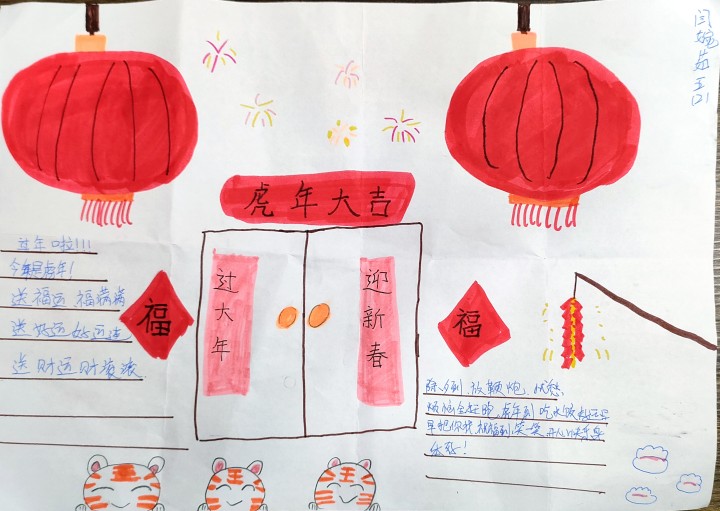 虎年大吉
过年啦!!!
今年是虎年!
送福运 福满满
送好运 好运连
送财运 财滚滚
福
过大年
迎新春
福
除夕到, 放鞭炮, 忧愁
烦恼全赶跑, 虎年到 吃水饺
早把你我祝福到, 笑一笑, 开心快乐
王
王
王